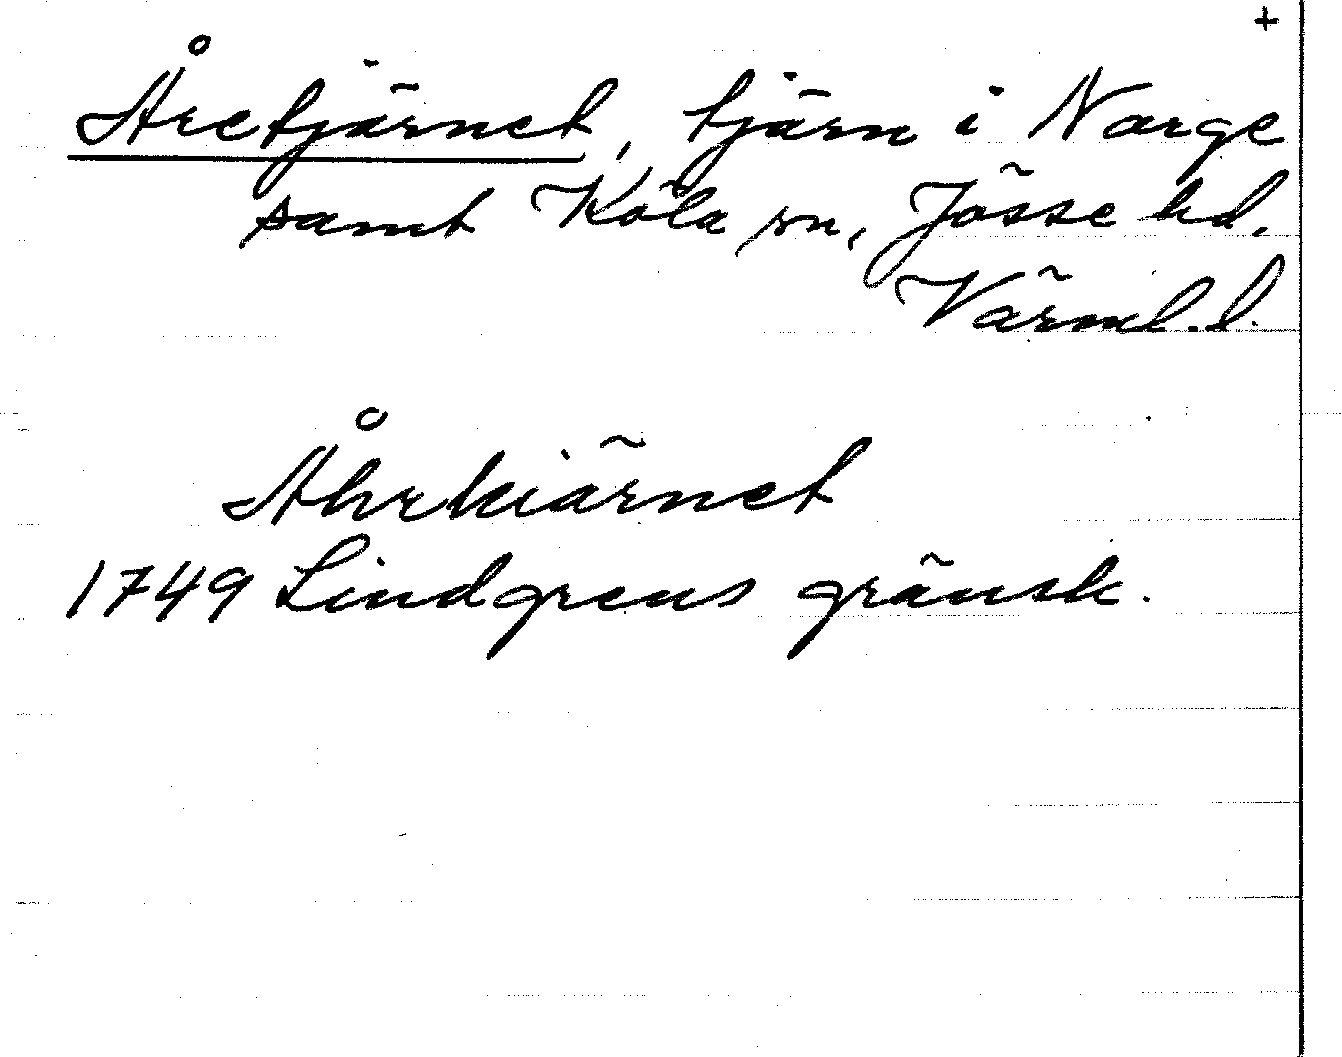 +
Åretjärnet, tjärn i Norge
samt Köla sn, Jösse hd.
Värml. l.
Åhrkiärnet
1749 Lindgrens gränsk.